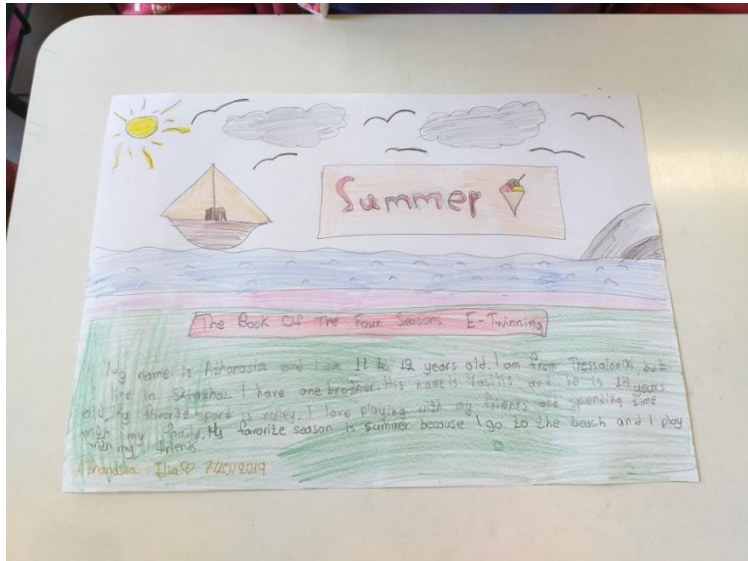 Summer
The Book Of The Four Seasons E-Twinning
My name is Athanasia and I am 11 to 12 years old. I am from Thessaloniki but
I live in I have one brother. His name is Vasilis and he is years
old. My favorite sport is volley. I love playing with my friends and spending time
with my family. My favorite season is summer because I go to the beach and I play
with my friends.
Athanasia Ilia♡ 7/20/2019